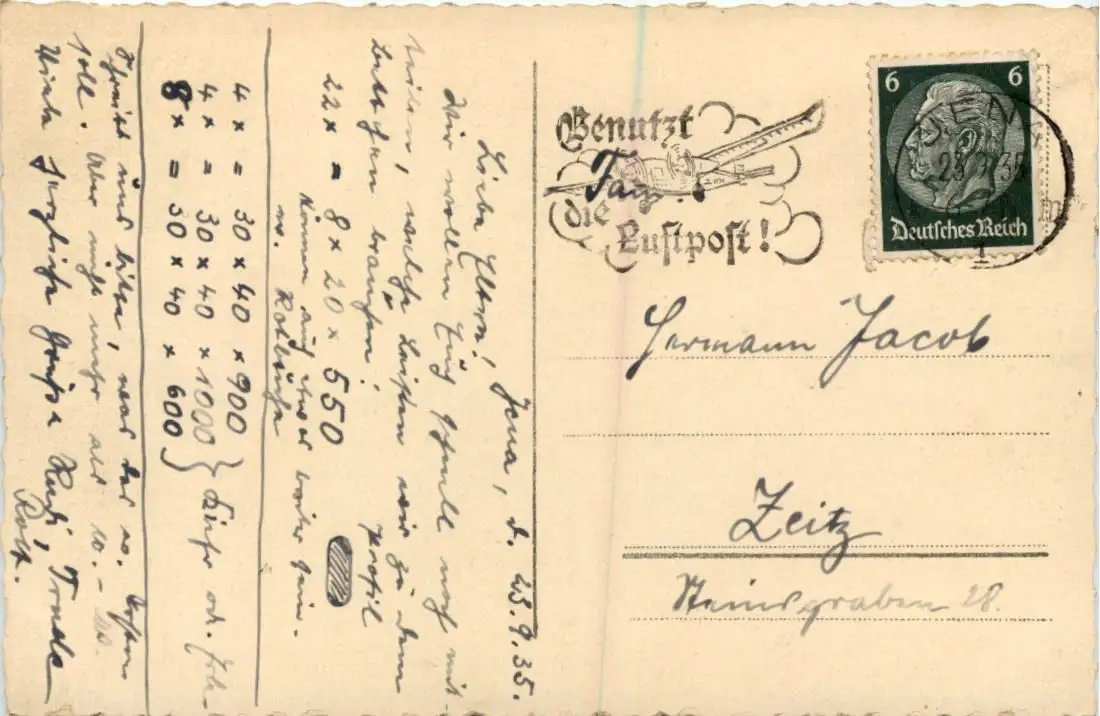 Jena, d. 23.9.35.
Liebe Eltern!
Wir wollen Euch schnell noch mit-
teilen, welche Leisten wir zu dem
Bettchen brauchen:
22 x = 8 x 20 x 550 Profil
können auch etwas breiter sein.
Rotbuche
4 x = 30 x 40 x 900
4 x = 30 x 40 x 1000 } Kiefer od.
8 x = 30 x 40 x 600
Schreibt uns bitte, was das kosten
soll. Aber nicht mehr als 10.-
Viele herzliche Grüße Trude
Rolf.
Benutzt
die
Luftpost!
6 6
Deutsches Reich
JENA
23.9.35
1
Hermann Jacob
Zeitz
Steinsgraben 28.